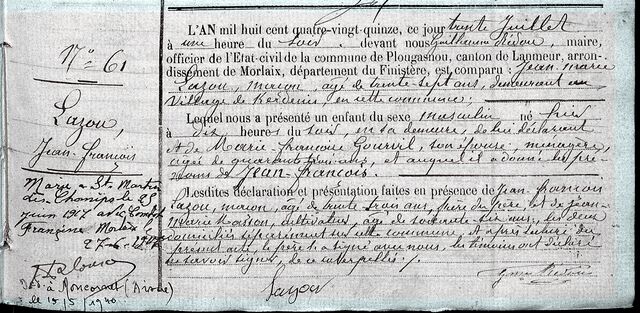 N° 61
Lazou,
Jean-François
Marié à St Martin
des Champs le 25
juin 1917 avec
Françoise
27-6-
Dcd à Moncornet (Aisne)
le 19/5/1940
L'AN mil huit cent quatre-vingt-quinze, ce jour trente Juillet
à une heure du soir devant nous Guillaume, maire,
officier de l'Etat-civil de la commune de Plougasnou, canton de Lanmeur, arron-
dissement de Morlaix, département du Finistère, est comparu : Jean Marie
Lazou, maçon, âgé de trente-sept ans, demeurant au
Village de en cette commune;
Lequel nous a présenté un enfant du sexe masculin né hier
à dix heures du soir, en sa demeure, de lui déclarant
et de Marie-Françoise Gourvil, son épouse, ménagère,
âgée de quarante ans, et auquel il a donné les pré-
noms de Jean-François.
Lesdites déclaration et présentation faites en présence de Jean François
Lazou, maçon, âgé de trente trois ans, frère du père et de Jean-
Marie, cultivateur, âgé de soixante six ans, les deux
domiciliés séparément en cette commune, et après lecture du
présent acte le père a signé avec nous, les témoins ont déclaré
ne savoir signer, de ce interpellés ;/.
Lazou